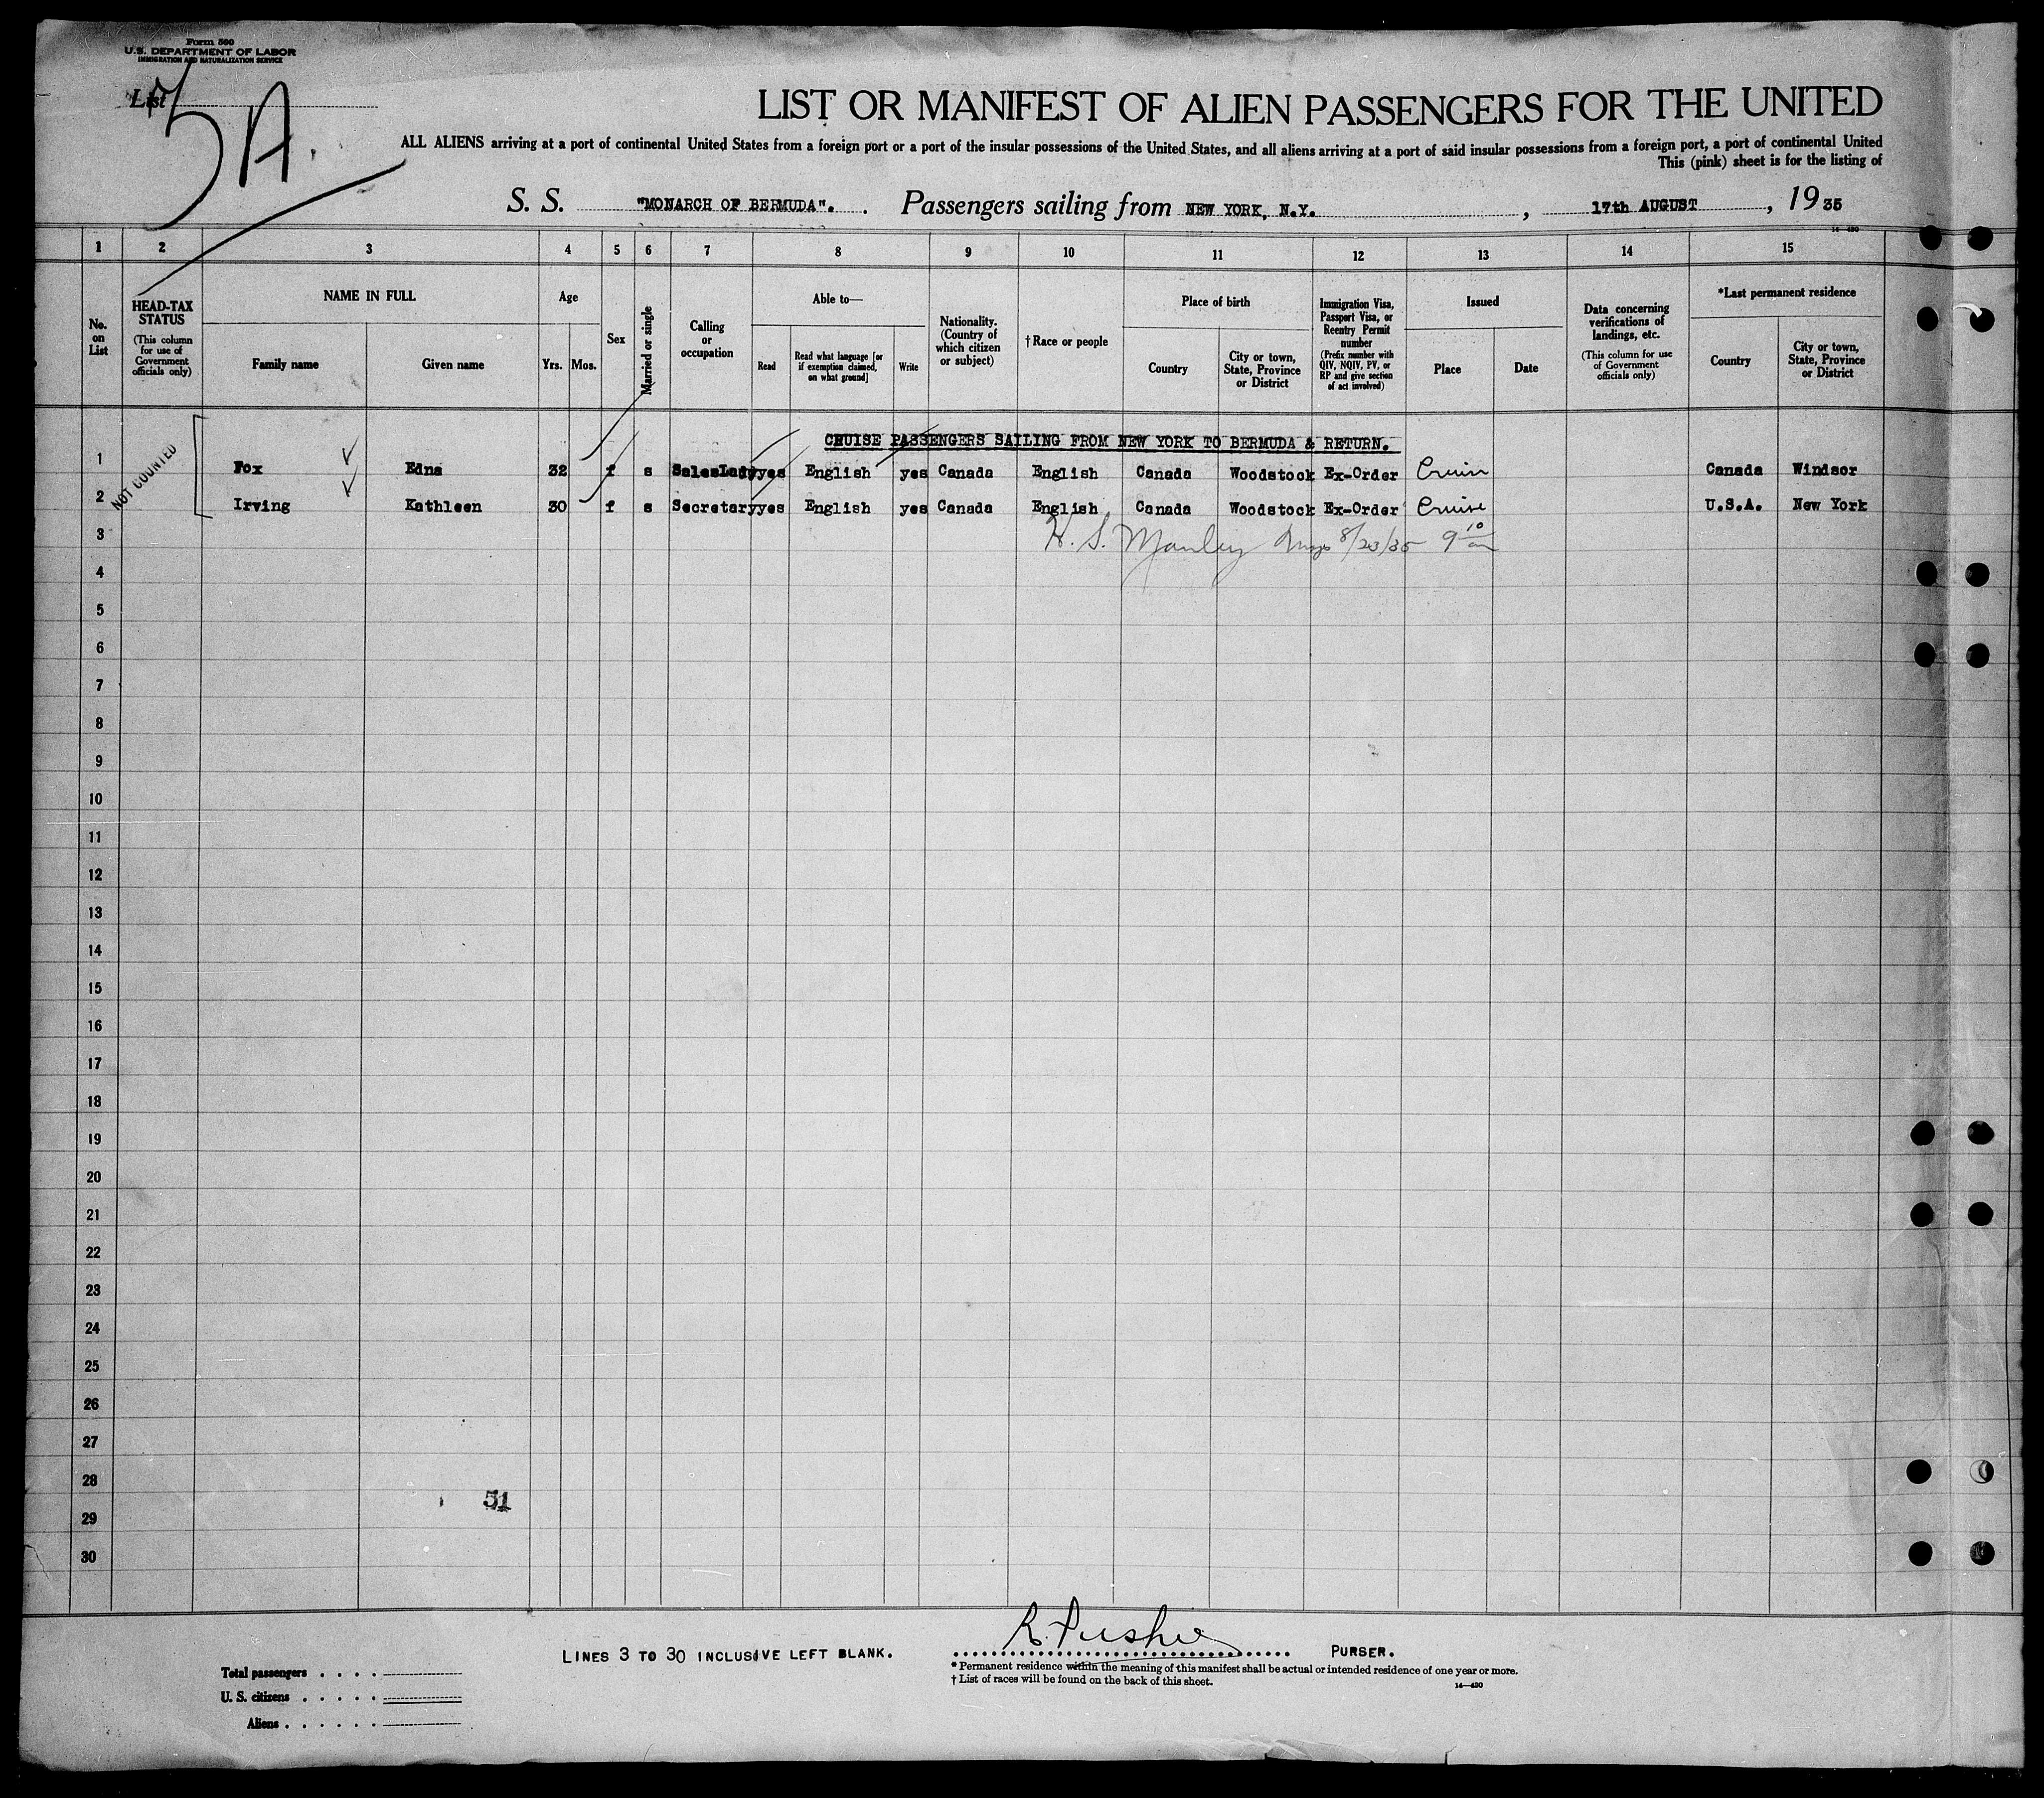 Form 500
U.S. DEPARTMENT OF LABOR
IMMIGRATION AND NATURALIZATION SERVICE
List
5A.
LIST OR MANIFEST OF ALIEN PASSENGERS FOR THE UNITED
ALL ALIENS arriving at a port of continental United States from a foreign port or a port of the insular possessions of the United States, and all aliens arriving at a port of said insular possessions from a foreign port, a port of continental United
This (pink) sheet is for the listing of
S. S. "MONARCH OF BERMUDA". Passengers sailing from NEW YORK, N.Y. , 17th AUGUST , 19 35
14—430
1 2 3 4 5 6 7 8 9 10 11 12 13 14 15
No. on List
HEAD-TAX STATUS (This column for use of Government officials only)
NAME IN FULL
Family name
Given name
Age
Yrs.
Mos.
Sex
Married or single
Calling or occupation
Able to—
Read
Read what language [or if exemption claimed, on what ground]
Write
Nationality. (Country of which citizen or subject)
†Race or people
Place of birth
Country
City or town, State, Province or District
Immigration Visa, Passport Visa, or Reentry Permit number (Prefix number with QIV, NQIV, PV, or RP and give section of act involved)
Issued
Place
Date
Data concerning verifications of landings, etc. (This column for use of Government officials only)
*Last permanent residence
Country
City or town, State, Province or District
CRUISE PASSENGERS SAILING FROM NEW YORK TO BERMUDA & RETURN.
NOT COUNTED
1 Fox Edna 32 f s SalesLady yes English yes Canada English Canada Woodstock Ex-Order Cruise Canada Windsor
2 Irving Kathleen 30 f s Secretary yes English yes Canada English Canada Woodstock Ex-Order Cruise U.S.A. New York
3 H. S. Manley 8/23/35 9 10 am
4
5
6
7
8
9
10
11
12
13
14
15
16
17
18
19
20
21
22
23
24
25
26
27
28
51
29
30
LINES 3 TO 30 INCLUSIVE LEFT BLANK. PURSER.
Total passengers . . . .
U. S. citizens . . . . .
Aliens . . . . . .
* Permanent residence within the meaning of this manifest shall be actual or intended residence of one year or more.
† List of races will be found on the back of this sheet.
14—430